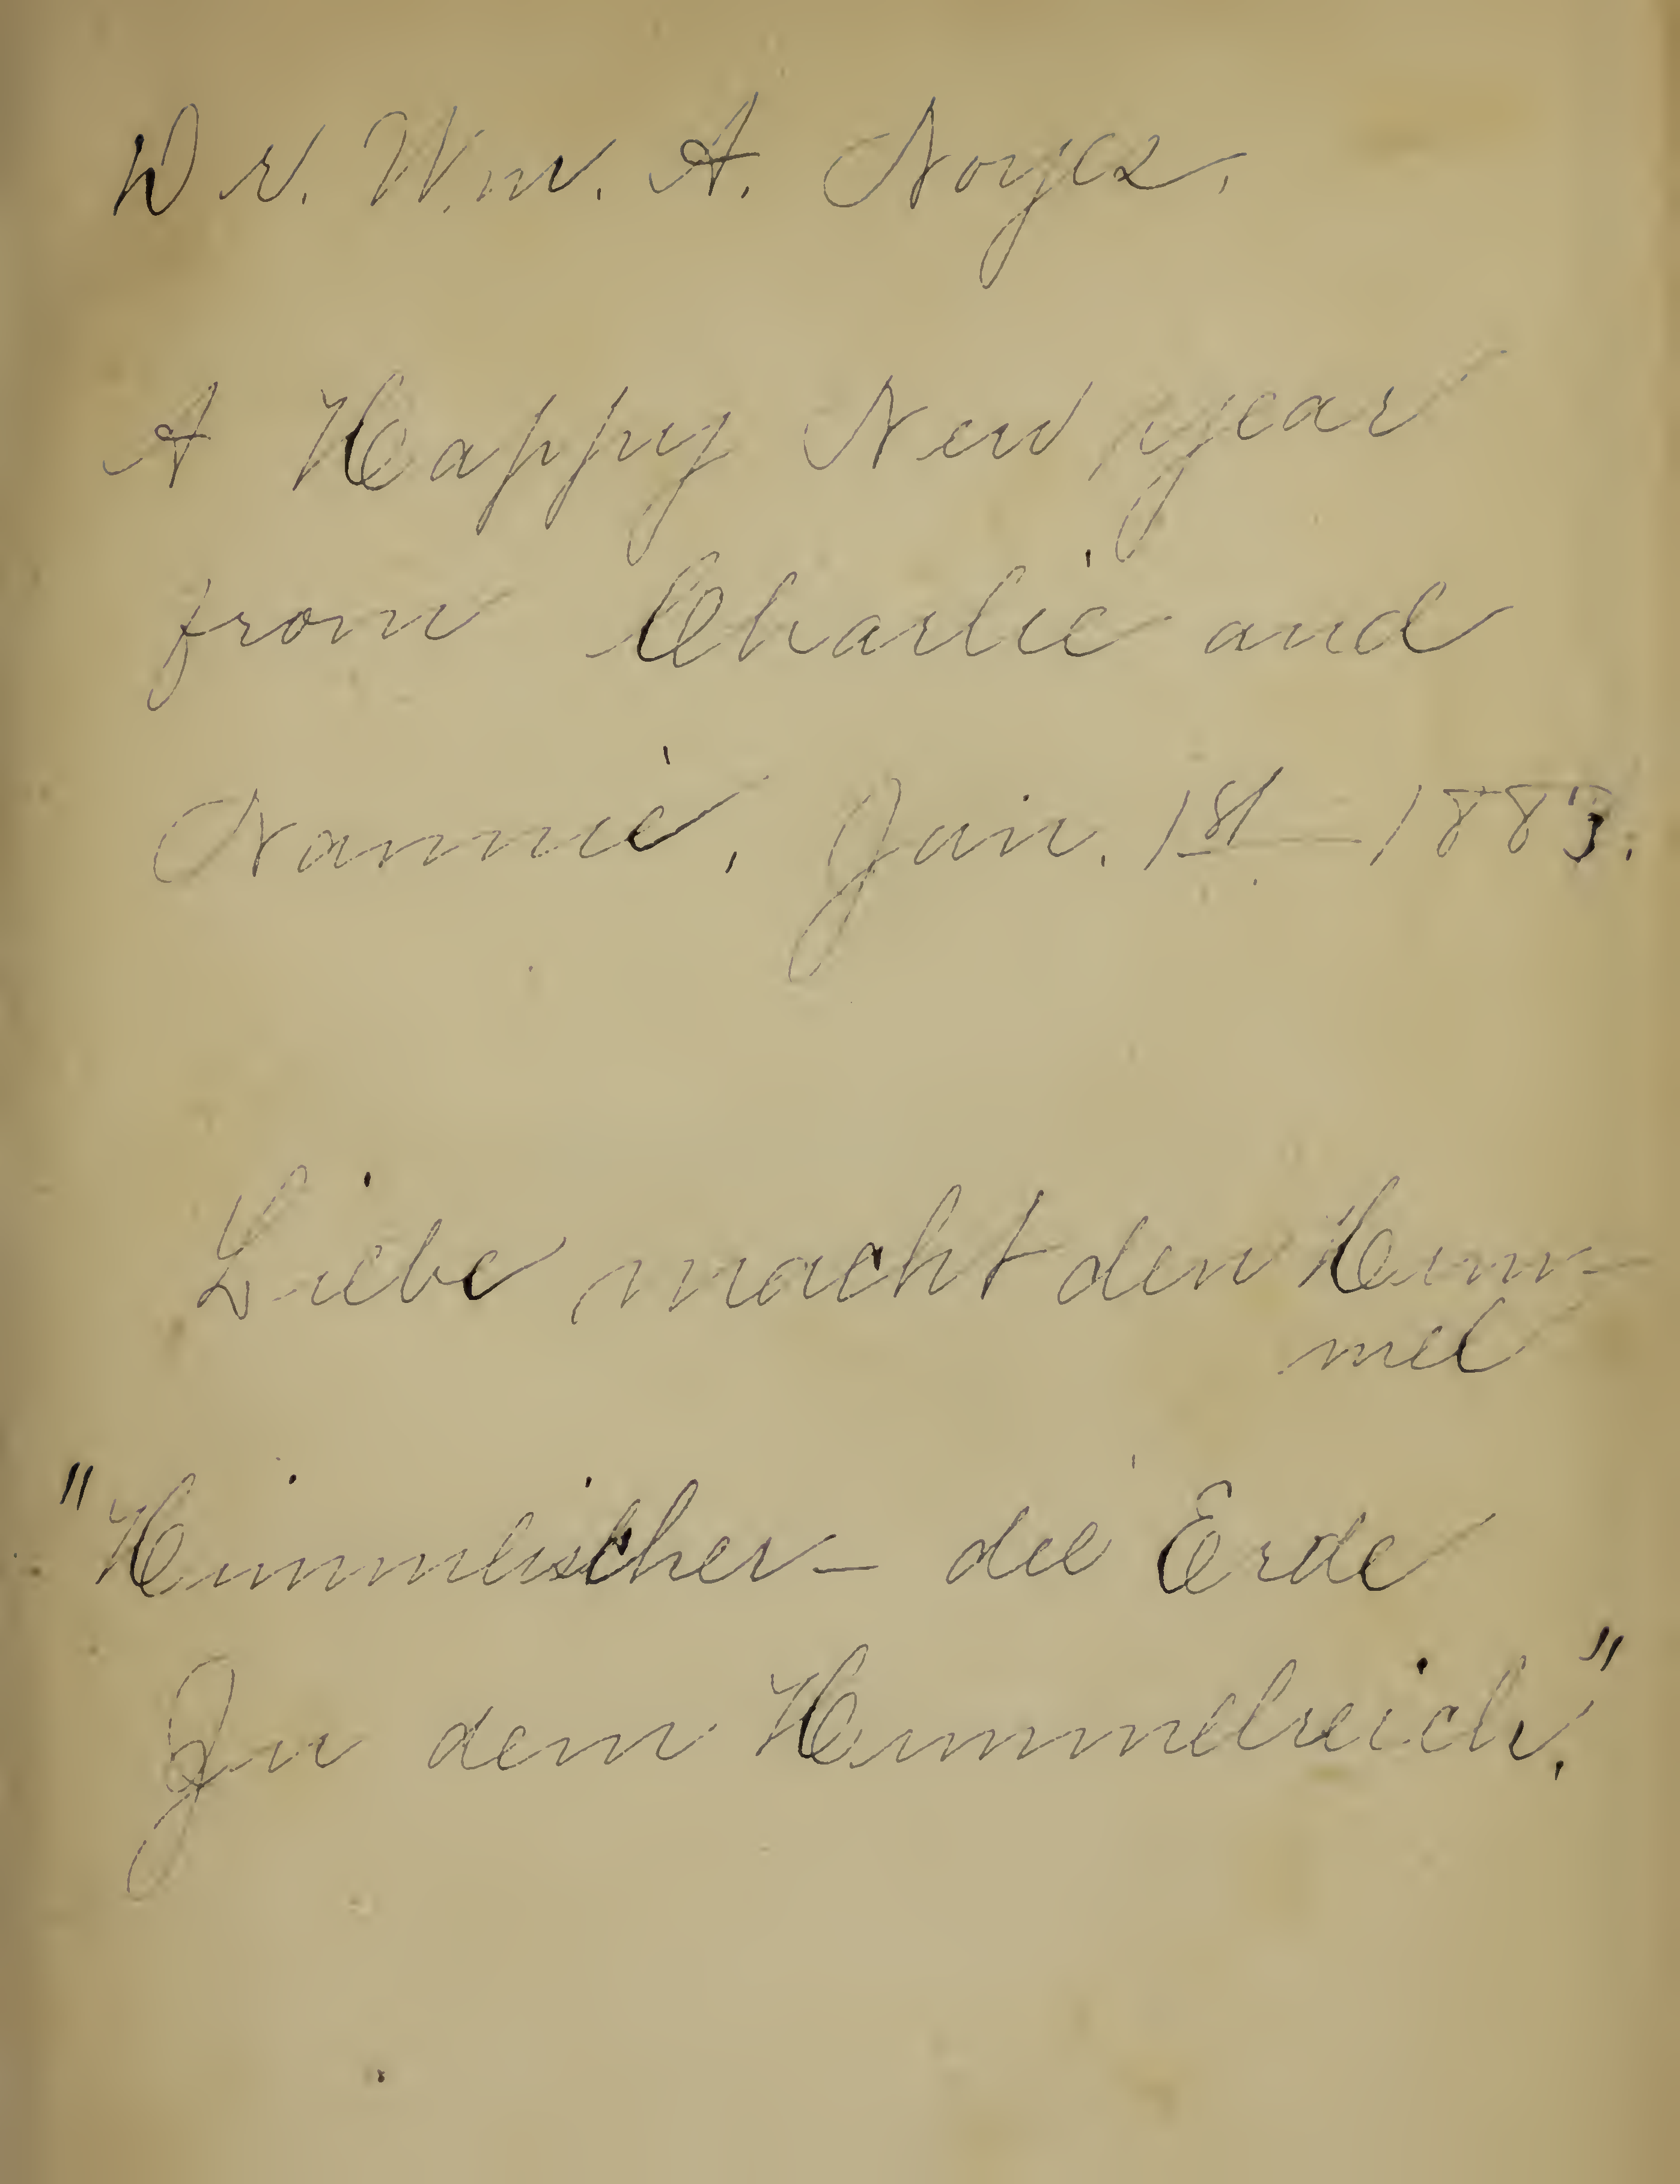 Dr. Wm. A. Noyes.
A Happy New year
from Charlie and
Nannie, Jan. 1st — 1883.
Liebe macht den Him-
mel
"Himmlischer — die Erde
Zu dem Himmelreich."